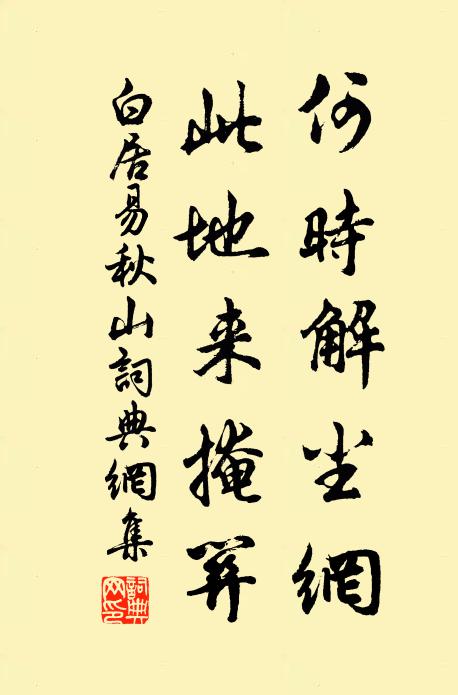 何時解尘網
此地来掩関
白居易秋山詞典網集
詞典
网印